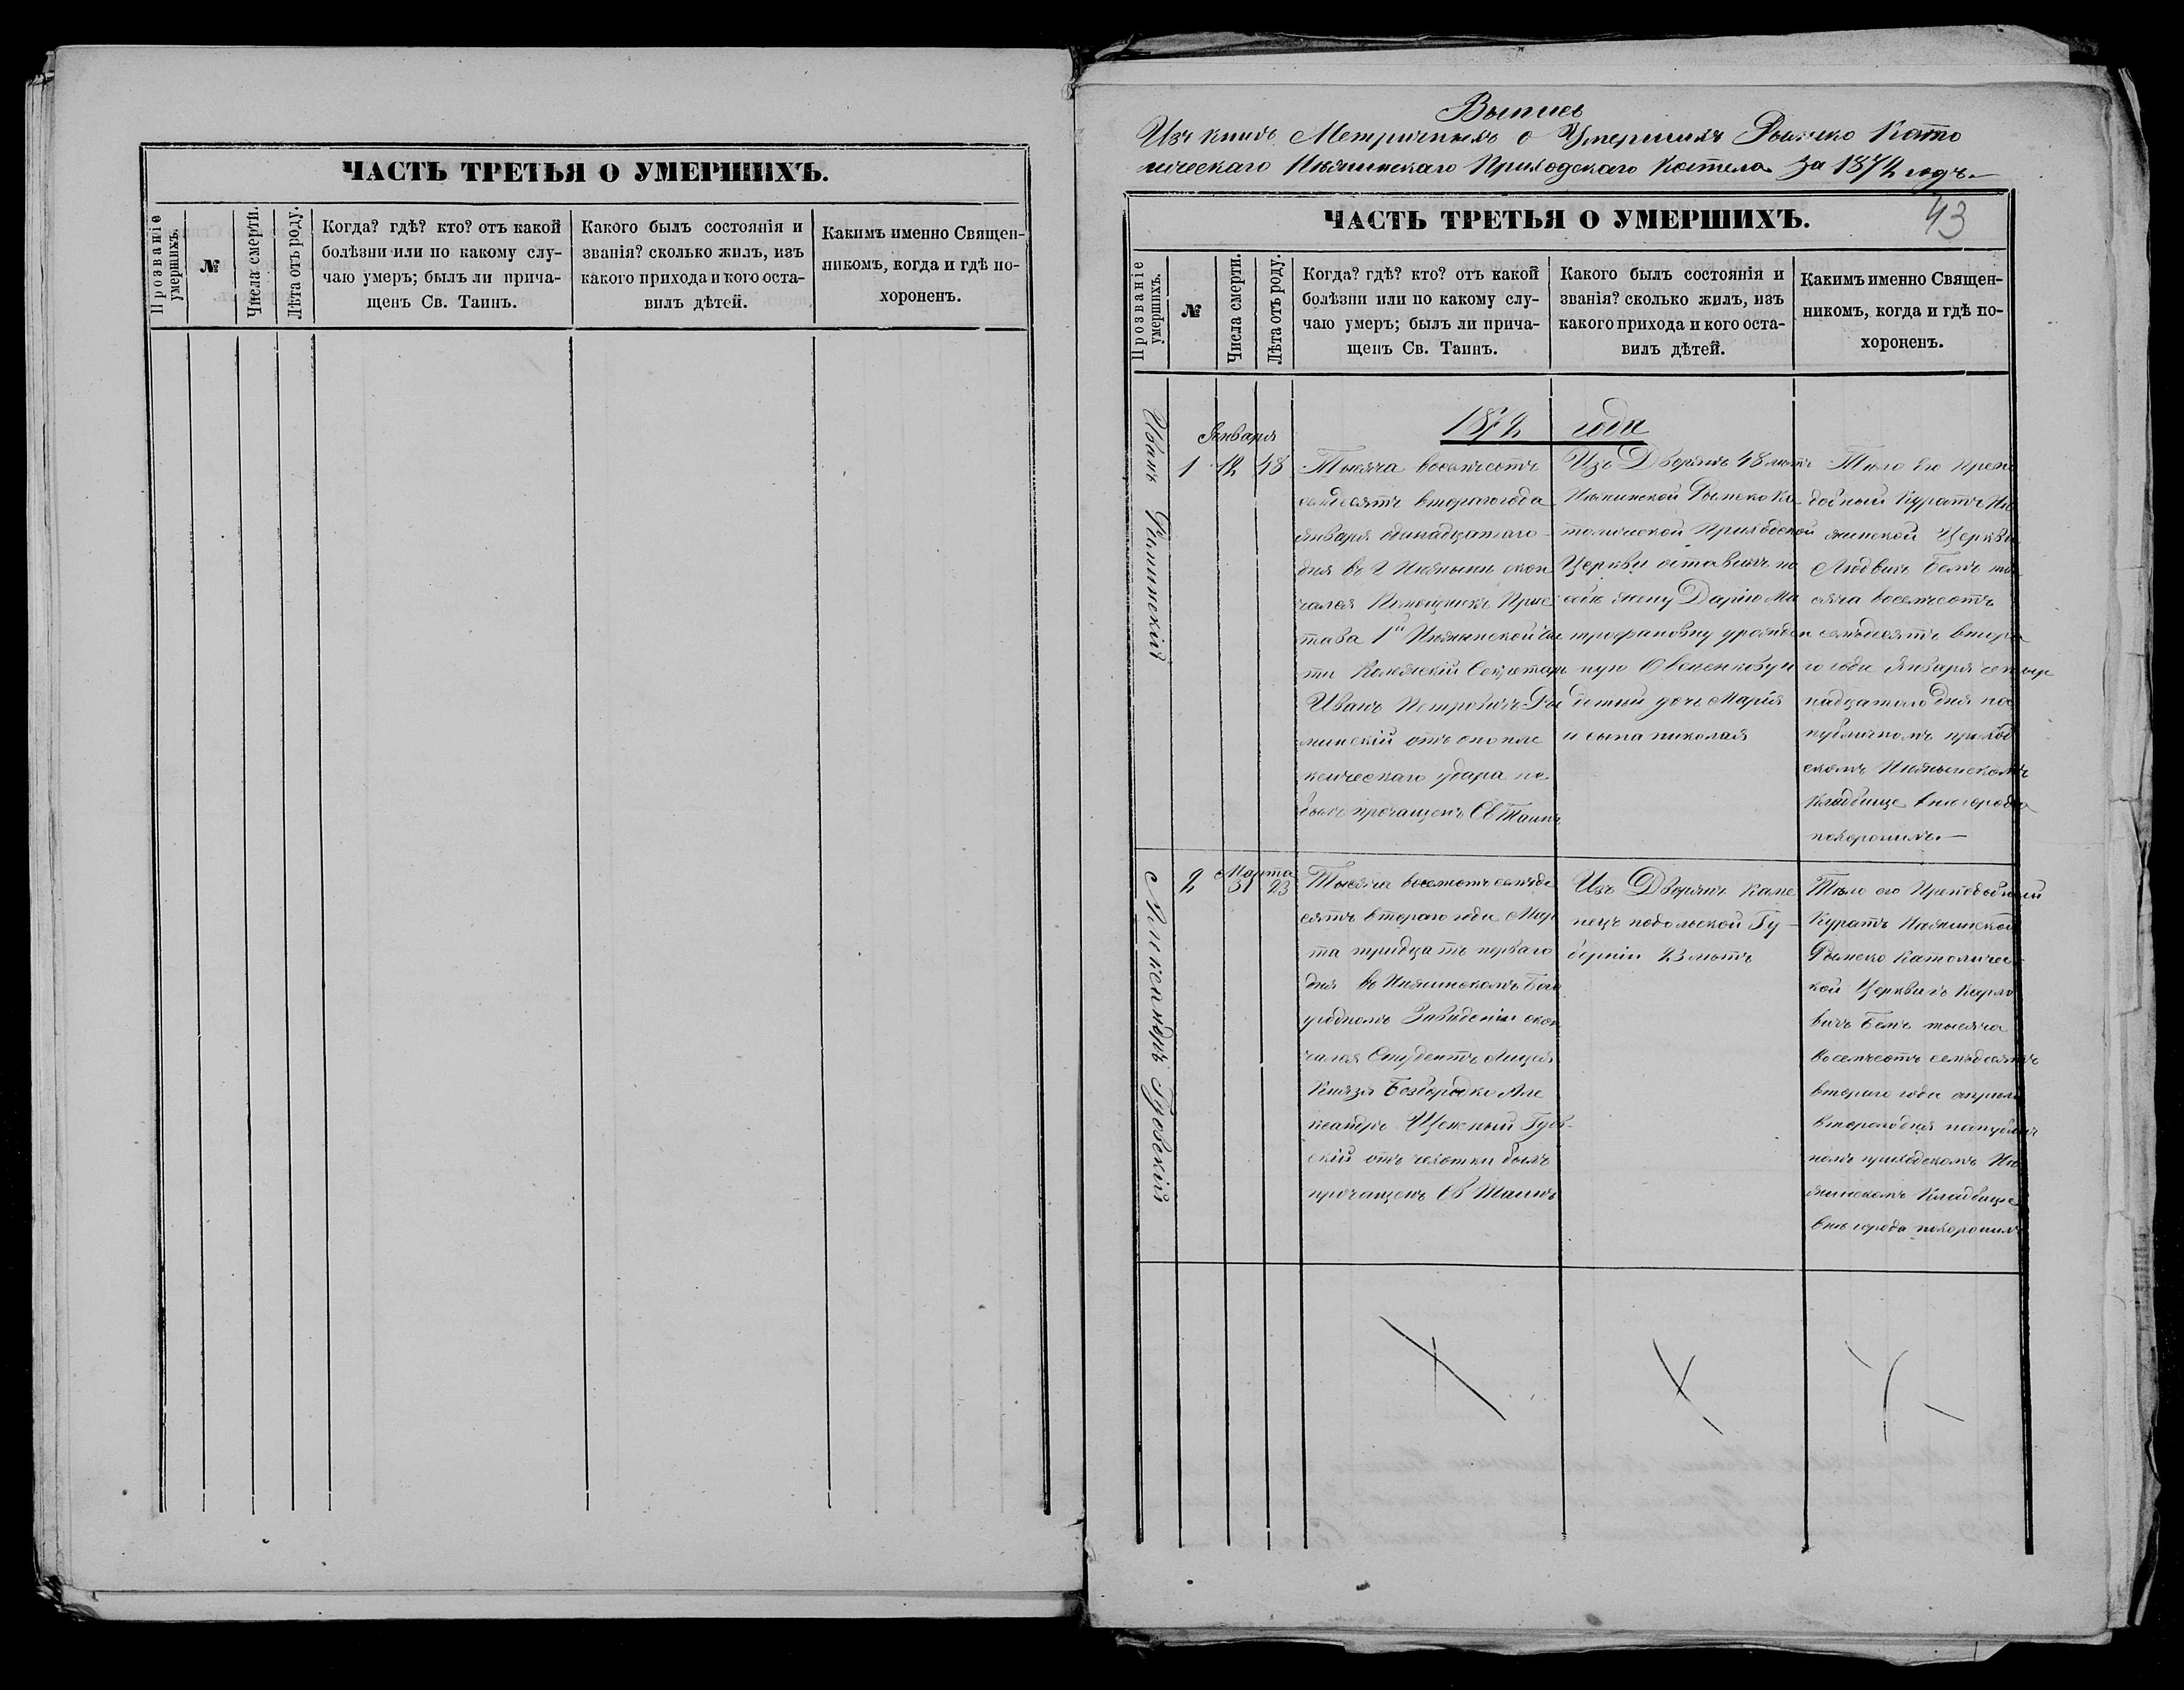 ЧАСТЬ ТРЕТЬЯ О УМЕРШИХЪ.
Прозваніе умершихъ.
№
Числа смерти.
Лѣта отъ роду.
Когда? гдѣ? кто? отъ какой
болѣзни или по какому слу-
чаю умеръ; былъ ли прича-
щенъ Св. Таинъ.
Какого былъ состоянія и
званія? сколько жилъ, изъ
какого прихода и кого оста-
вилъ дѣтей.
Какимъ именно Священ-
никомъ, когда и гдѣ по-
хороненъ.
Выпись
Изъ книгъ Метричныхъ о Умершихъ Римско Като
лическаго Нѣжинскаго Приходскаго Костела за 1872 годъ.
43
ЧАСТЬ ТРЕТЬЯ О УМЕРШИХЪ.
Прозваніе умершихъ.
№
Числа смерти.
Лѣта отъ роду.
Когда? гдѣ? кто? отъ какой
болѣзни или по какому слу-
чаю умеръ; былъ ли прича-
щенъ Св. Таинъ.
Какого былъ состоянія и
званія? сколько жилъ, изъ
какого прихода и кого оста-
вилъ дѣтей.
Какимъ именно Священ-
никомъ, когда и гдѣ по-
хороненъ.
1872 года
Иванъ
Января
1 12 48
Тысяча восемсотъ
семдесятъ второго года
января одинадцатаго
дня въ Г Нѣжынѣ скон
чался Помощникъ Прис
тава 1й Нѣжинской Час
ти Колежскій Секретарь
Иванъ Петровичъ
минскій отъ апопле
ксическаго удара не
былъ причащенъ Св Таинъ
Изъ Дворянъ 48 лѣтъ
Нѣжинской Римско Ка
толической Приходской
Церкви оставилъ по
себѣ жену Дарію Ма
трофановну урожден
ную
дѣтей дочь Марія
и сына николая
Тѣло его Препо
добный Куратъ Нѣ
жинской Церкви
Людвигъ Бемъ ты
сяча восемсотъ
семдесятъ второ
го года Января четыр
надцатого дня на
публичномъ приход
скомъ Нѣжынскомъ
Кладбище внѣ города
похоронилъ.
Александръ Губскій
2
Марта
31 23
Тысяча восемсотъ семъде
сятъ второго года Мар
та тридцать перваго
дня во Нѣжинскомъ Бого
угодномъ Заведеніи скон
чался Студентъ Лицея
Князя Безбородко Але
ксандръ Щенсный Губ-
скій отъ чахотки былъ
причащенъ Св Таинъ
Изъ Дворянъ Каме
нецъ подольской Гу-
берніи 23 лѣтъ
Тѣло его Преподобный
Куратъ Нѣжинской
Римско Католичес
кой Церкви Карло
вичъ Бемъ тысяча
восемсотъ семьдесятъ
второго года апреля
второго дня на публич
номъ приходскомъ Нѣ
жинскомъ Кладбище
внѣ города похоронилъ